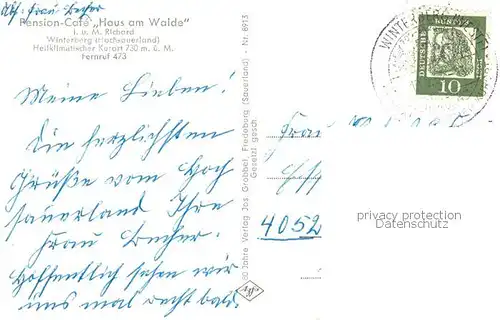 Abs. Frau Becher
Pension-Café „Haus am Walde"
I. u. M. Richard
Winterberg (Hochsauerland)
Heilklimatischer Kurort 730 m. ü. M.
Fernruf 473
Meine Lieben!
Die herzlichsten
Grüße vom Hoch
sauerland Ihre
Frau Becher.
Hoffentlich sehen wir
uns mal recht bald.
80 Jahre Verlag Jos Grobbel, Fredeburg (Sauerland) - Nr. 8913
Gesetzl. gesch.
WINTERBERG
DEUTSCHE BUNDESPOST
10
Frau
4052
privacy protection
Datenschutz